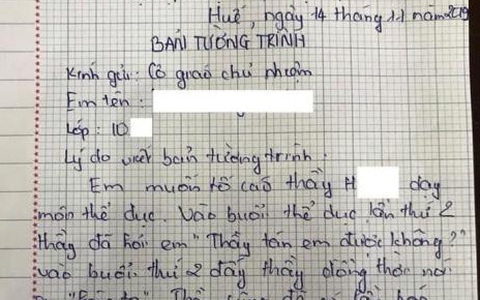 Huế, ngày 14 tháng 11 năm 2019
BẢN TƯỜNG TRÌNH
Kính gửi: Cô giáo chủ nhiệm
Em tên :
Lớp : 10
Lý do viết bản tường trình :
Em muốn tố cáo thầy H dạy
môn thể dục. Vào buổi thể dục lần thứ 2
thầy đã hỏi em "Thầy tán em được không?"
vào buổi thứ 2 đấy thầy đồng thời nói